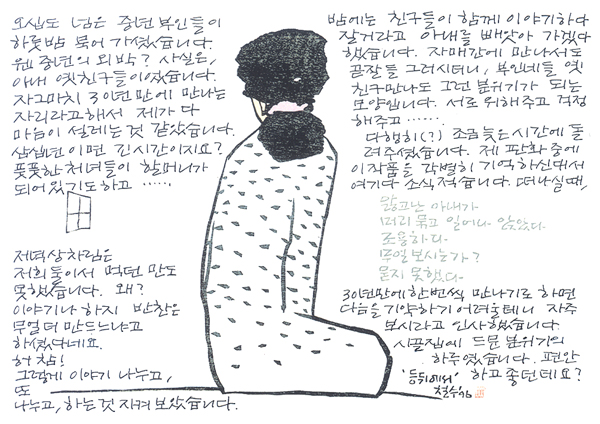 오십도 넘은 중년부인들이
하룻밤 묵어 가셨습니다.
웬 중년의 외박? 사실은,
아내 옛친구들이었습니다.
자그마치 30여년만에 만나는
자리라고해서 제가 다
마음이 설레는것 같았습니다.
삼십년이면 긴 시간이지요?
풋풋한 처녀들이 할머니가
되어있기도하고 ……
제 저녁상차림은
저희 둘이서 먹던 만도
못했습니다. 왜?
이야기나 하지 반찬은
무얼 더 만드느냐고
하셨다네요.
허 참!
그렇게 이야기 나누고,
또
나누고, 하는것 지켜 보았습니다.
밤에는 친구들이 함께 이야기하다
잘거라고 아내를 빼앗아 가겠다
했습니다. 자매간에 만나서도
곧잘들 그러시더니, 부인네들 옛
친구만나도 그런 분위기가 되는
모양입니다. 서로 위해주고 걱정
해주고 ……
다행히(?) 조금 늦은 시간에 돌
려주셨습니다. 제 판화 중에
이 작품을 각별히 기억하신대서
여기다 소식 적습니다. 떠나실때,
앓고난 아내가
머리 묶고 일어나 앉았다
조용하다
무얼 보시는가?
묻지 못했다
30여년만에 한번씩 만나기로 하면
다음을 기약하기 어려울테니 자주
보시라고 인사했습니다
시골집에 드문 분위기의
하루였습니다. 편안
하고 좋던데요?
'등뒤에서'
철수 96